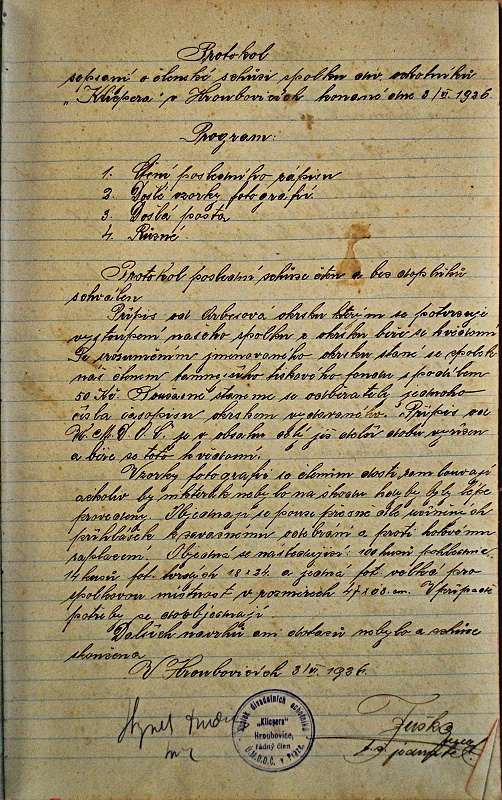 Protokol
sepsaní o členské schůzi spolku div. ochotníků
„Klicpera" v Hroubovicích konané dne 3/VI. 1936.
Program:
1. Čtení posledního zápisu
2. Došlé vzorky fotografií
3. Došlá pošta
4. Různé.
Protokol poslední schůze čten a bez doplňků
schválen
Přípis od Arbesova okrsku kterým se potvrzuje
vystoupení našeho spolku z okrsku béře se k vědomí
Po srozuměním jmenovaného okrsku stane se spolek
náš členem tiskového fondu s podílem
50 Kč. Současně staneme se odběrateli jednoho
čísla časopisu okrskem vydávaného. Přípis od
Ú.M.D.O.Č. je v obsahu již dobu vyřízen
a béře se toto k vědomí.
Vzorky fotografií se členům dosti zamlouvají
ačkoliv by nikterak nebylo na škodu kdyby byly lépe
provedeny. Objednají se pouze přesně dle učiněných
přihlášek k závaznému odebrání a proti hotovému
zaplacení. Objedná se následující: 100 kusů pohlednic,
14 kusů fot. tvrdých 18 x 24. a jedna fot. velká pro
spolkovou místnost v rozměrech 47 x 63 cm. V případě
potřeby se doobjednají
Dalších návrhů ani dotazů nebylo a schůze
skončena
V Hroubovicích 3/VI. 1936.
Spolek divadelních ochotníků
"Klicpera"
Hroubovice,
řádný člen
Ú.M.D.O.Č. v Praze.